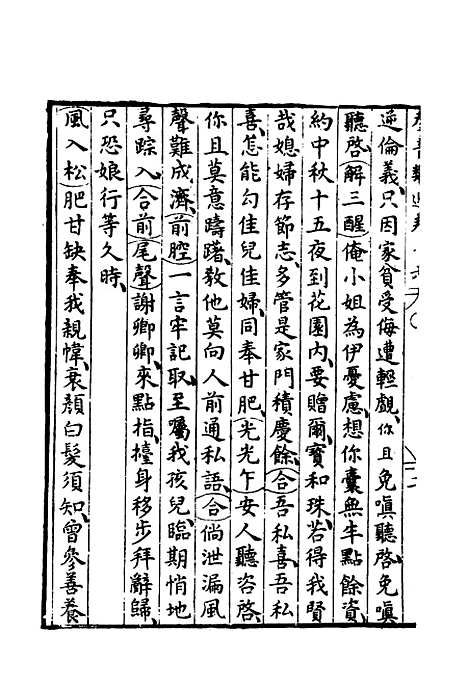 逆倫義、只因家貧受侮遭輕覷、你且免嗔聽啓、免嗔
聽啓、解三酲俺小姐為伊憂慮、想你囊無半點餘資、
約中秋十五夜到花園内、要贈爾、寳和珠、若得我賢
哉媳婦存節志、多管是家門積慶餘、合吾私喜、吾私
喜、怎能勾佳兒佳婦、同奉甘肥、光光乍安人聽咨啓、
你且莫意躊躇、教他莫向人前通私語、合倘泄漏風
聲難成濟、前腔一言牢記取、至囑我孩兒、臨期悄地
尋踪入、合前尾聲謝卿卿、來點指、擡身移步拜辭歸、
只恐娘行等久時、
風入松肥甘缺奉我親幃、衰顏白髪須知、曾參善養